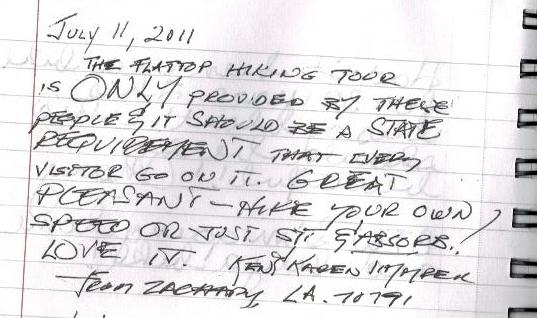 July 11, 2011
THE FLATTOP HIKING TOUR
IS ONLY PROVIDED BY THESE
PEOPLE & IT SHOULD BE A STATE
REQUIREMENT THAT EVERY
VISITOR GO ON IT. GREAT
PLEASANT - HIKE YOUR OWN
SPEED OR JUST SIT & ABSORB!
LOVE IT. KEN & KAREN
From ZACHARY, LA. 70791